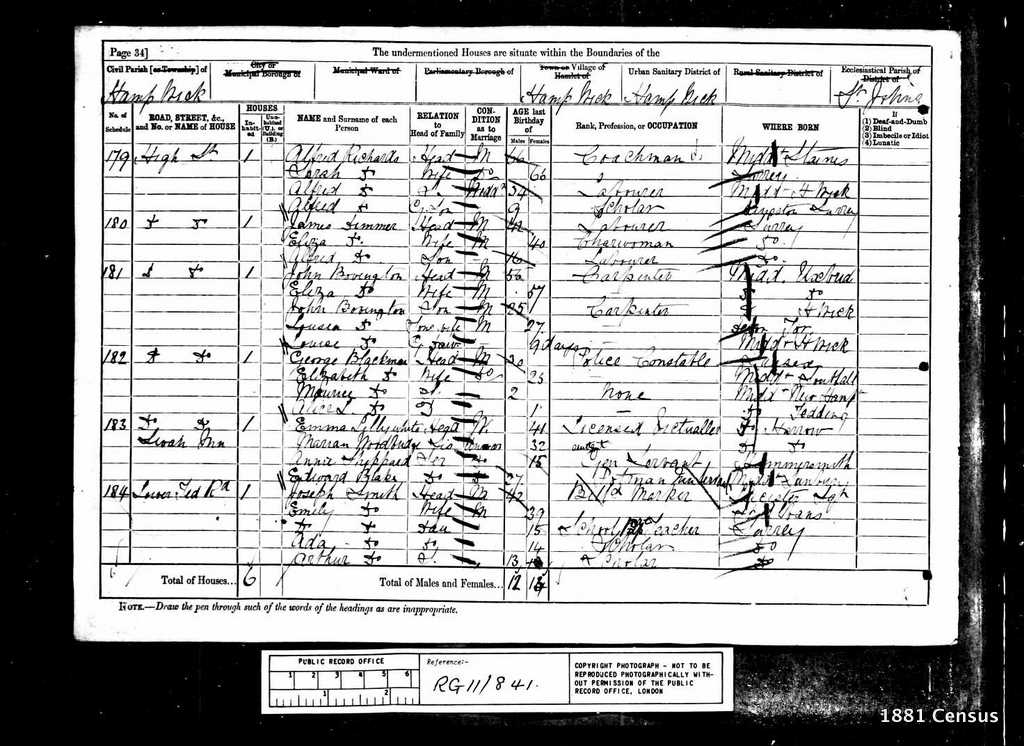 Page 34]
The undermentioned Houses are situate within the Boundaries of the
Civil Parish [or Township] of
City or Municipal Borough of
Municipal Ward of
Parliamentary Borough of
Town or Village of Hamlet of
Urban Sanitary District of
Rural Sanitary District of
Ecclesiastical Parish of District of
Hamp Wick Hamp Wick Hamp Wick St Johns
No. of Schedule
ROAD, STREET, &c., and No. or NAME of HOUSE
HOUSES
Inhabited
Uninhabited (U.), or Building (B.)
NAME and Surname of each Person
RELATION to Head of Family
CONDITION as to Marriage
AGE last Birthday of
Males Females
Rank, Profession, or OCCUPATION
WHERE BORN
If
(1) Deaf-and-Dumb
(2) Blind
(3) Imbecile or Idiot
(4) Lunatic
179 High St 1 Alfred Richards Head M 66 Coachman Middx Staines
Sarah do Wife do 66
Alfred do S. 34 Labourer Middx H Wick
Alfred do Gr Son 9 Scholar Kingston Surrey
180 do do 1 James Dimmer Head M Labourer Surrey
Eliza do Wife M 40 Charwoman do
Alfred do Son 16 Labourer do
181 do do 1 John Bovington Head M Carpenter Midd. Uxbrid
Eliza do Wife M 57 do
John Bovington Son M 25 Carpenter H Wick
Louisa do Sons wife M 27
Louise do 9 days Middx H Wick
182 do do 1 George Blackman Head M 30 Police Constable Sussex
Elizabeth do Wife do 25 Middx Southall
do S. 2 None Middx New Hamp
Alice L. do 1 do Tedding
183 do do 1 Emma Lillywhite Head W 41 Licensed Victualler do Harrow
Swan Inn Marian Woodbridge Sis 32 do do
Annie Sheppard Ser 15 Gen Servant Hammersmith
Edward Blake do do 27 Potman Middx
184 Lower Ted Rd 1 Joseph Smith Head M 42 Marker
Emily do Wife M 39
do do Dau 15 School Teacher Surrey
Ada do do 14 Scholar do
Arthur do S. 13 Scholar do
Total of Houses... 6
Total of Males and Females... 12 13
NOTE.—Draw the pen through such of the words of the headings as are inappropriate.
PUBLIC RECORD OFFICE
1 2 3 4 5 6
1 2
Reference:-
RG 11/841.
COPYRIGHT PHOTOGRAPH - NOT TO BE
REPRODUCED PHOTOGRAPHICALLY WITH-
OUT PERMISSION OF THE PUBLIC
RECORD OFFICE, LONDON
1881 Census